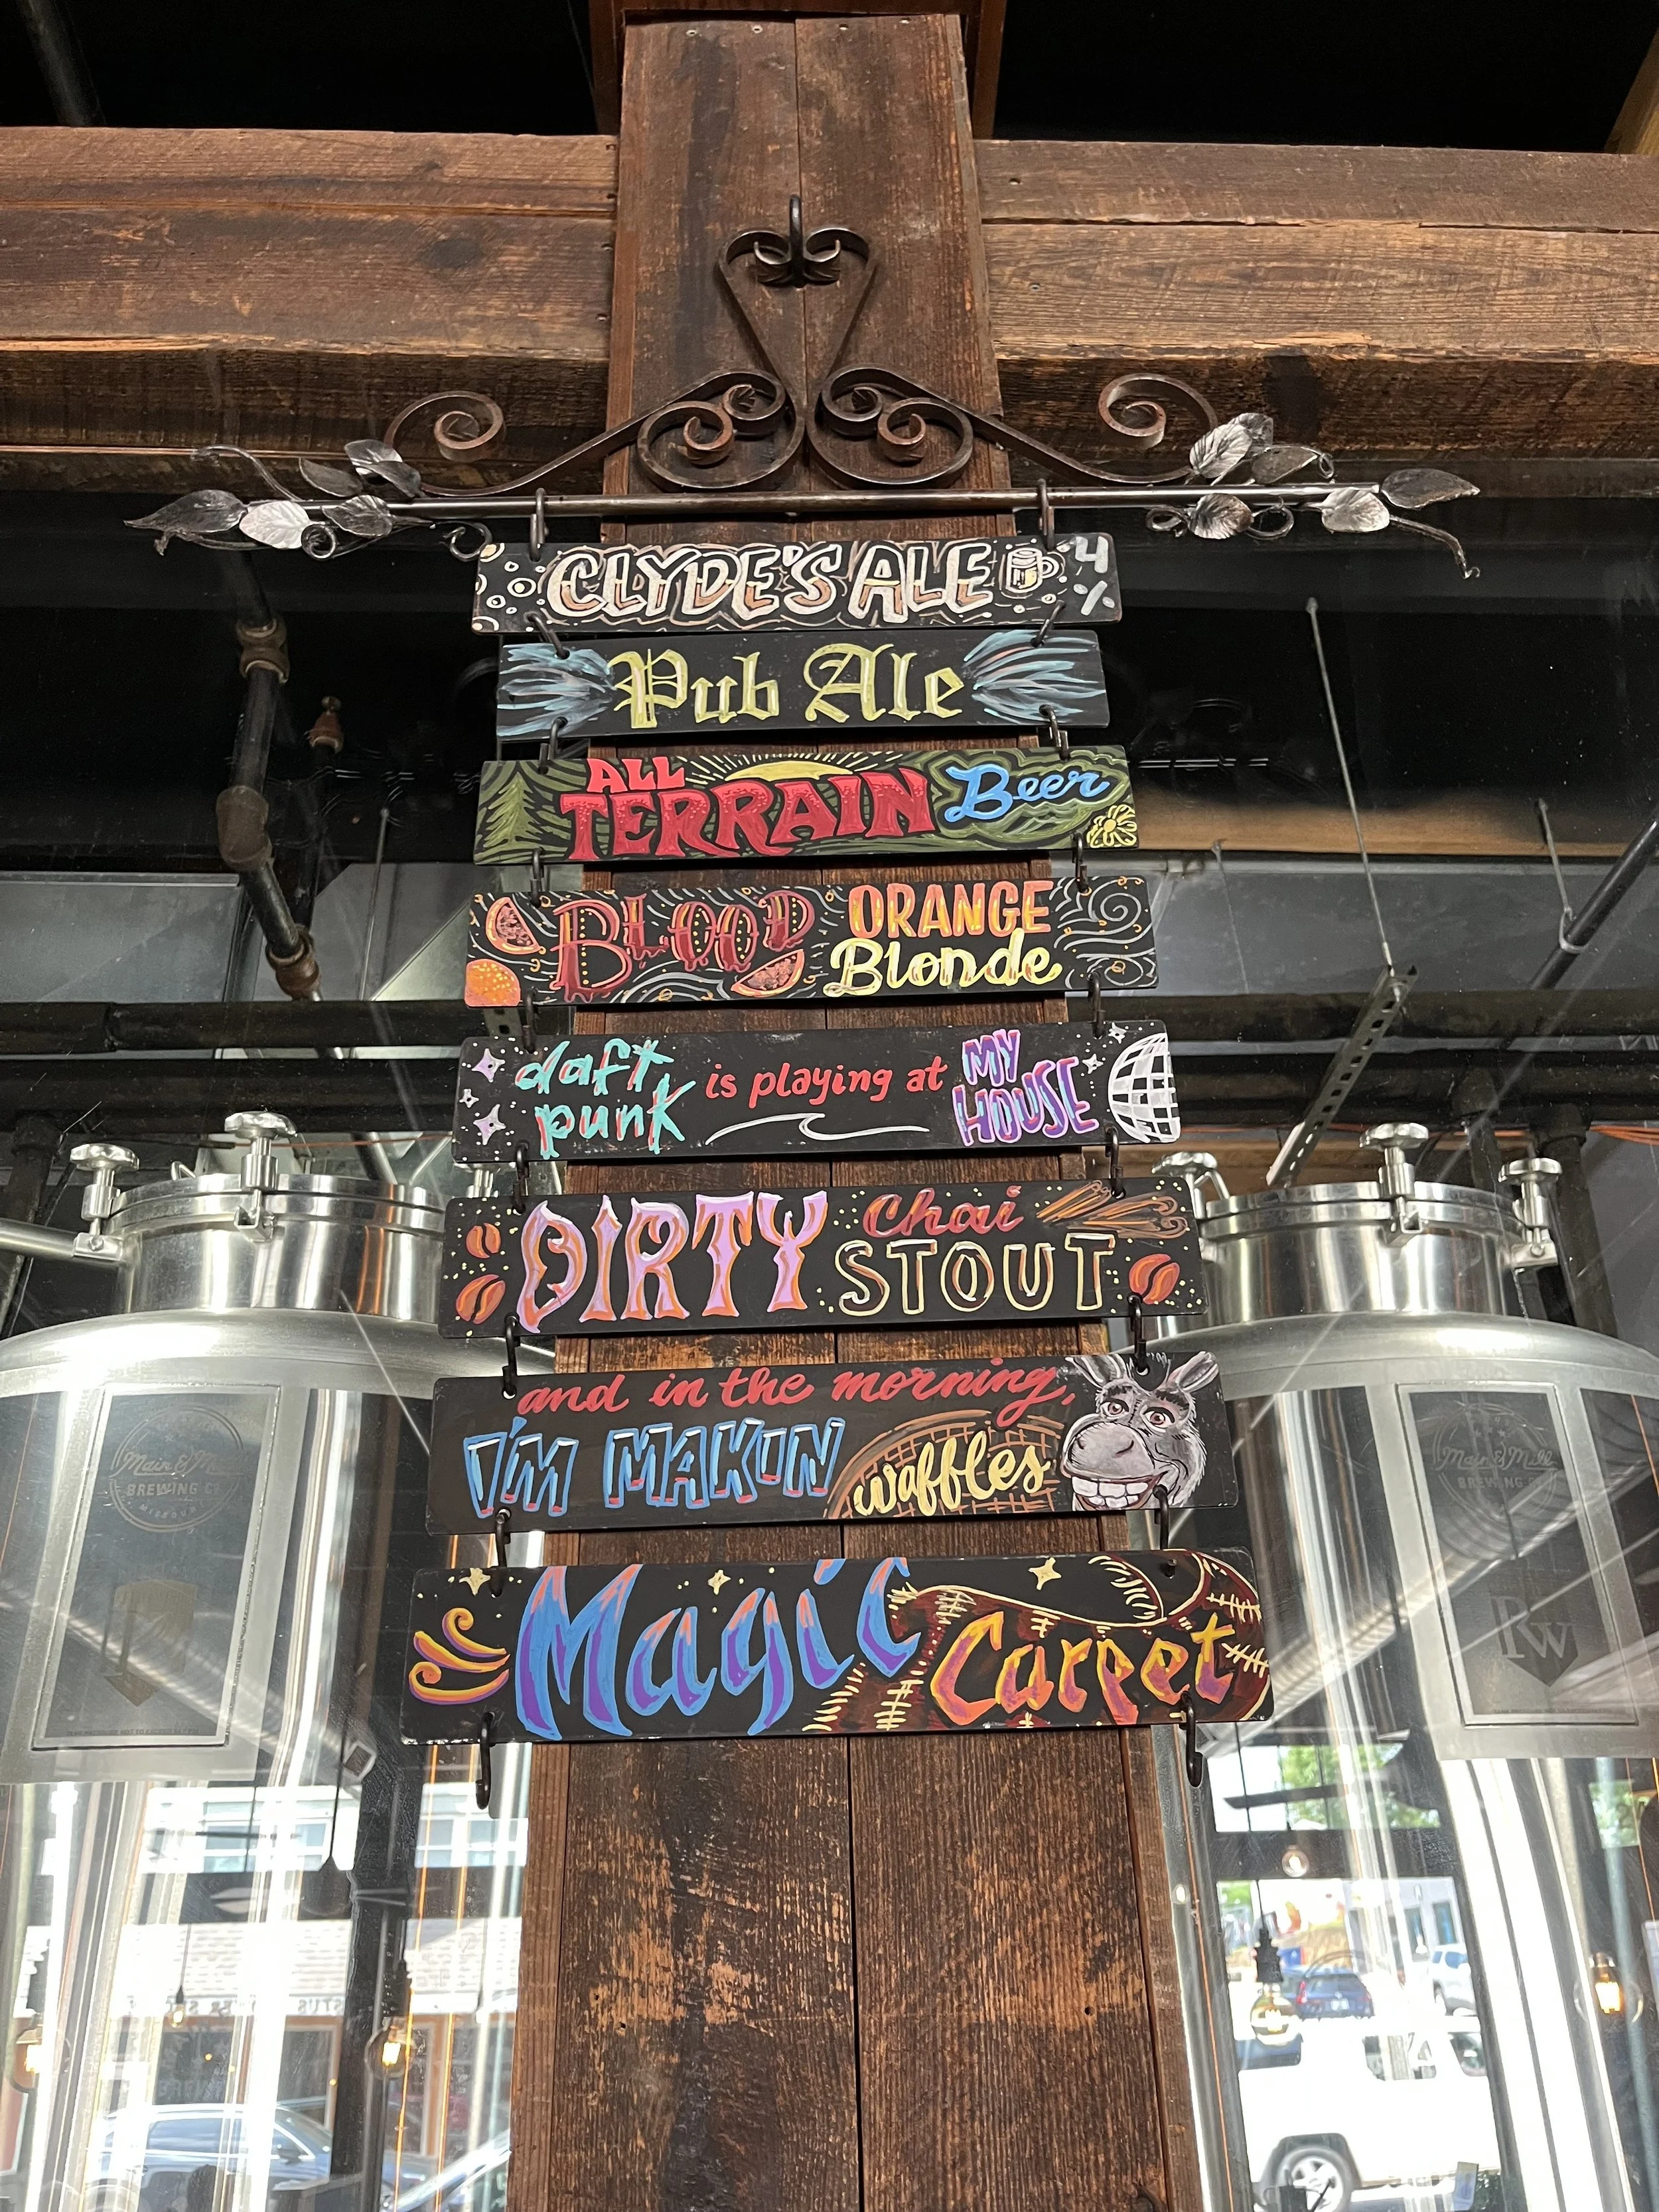 CLYDE'S ALE 4 %
Pub Ale
ALL
TERRAIN Beer
BLOOD ORANGE
Blonde
daft
punk is playing at MY
HOUSE
DIRTY Chai
STOUT
and in the morning,
I'M MAKIN waffles
Magic Carpet
Main & Mill
BREWING CO
MISSOURI
Main & Mill
BREWING CO
RW